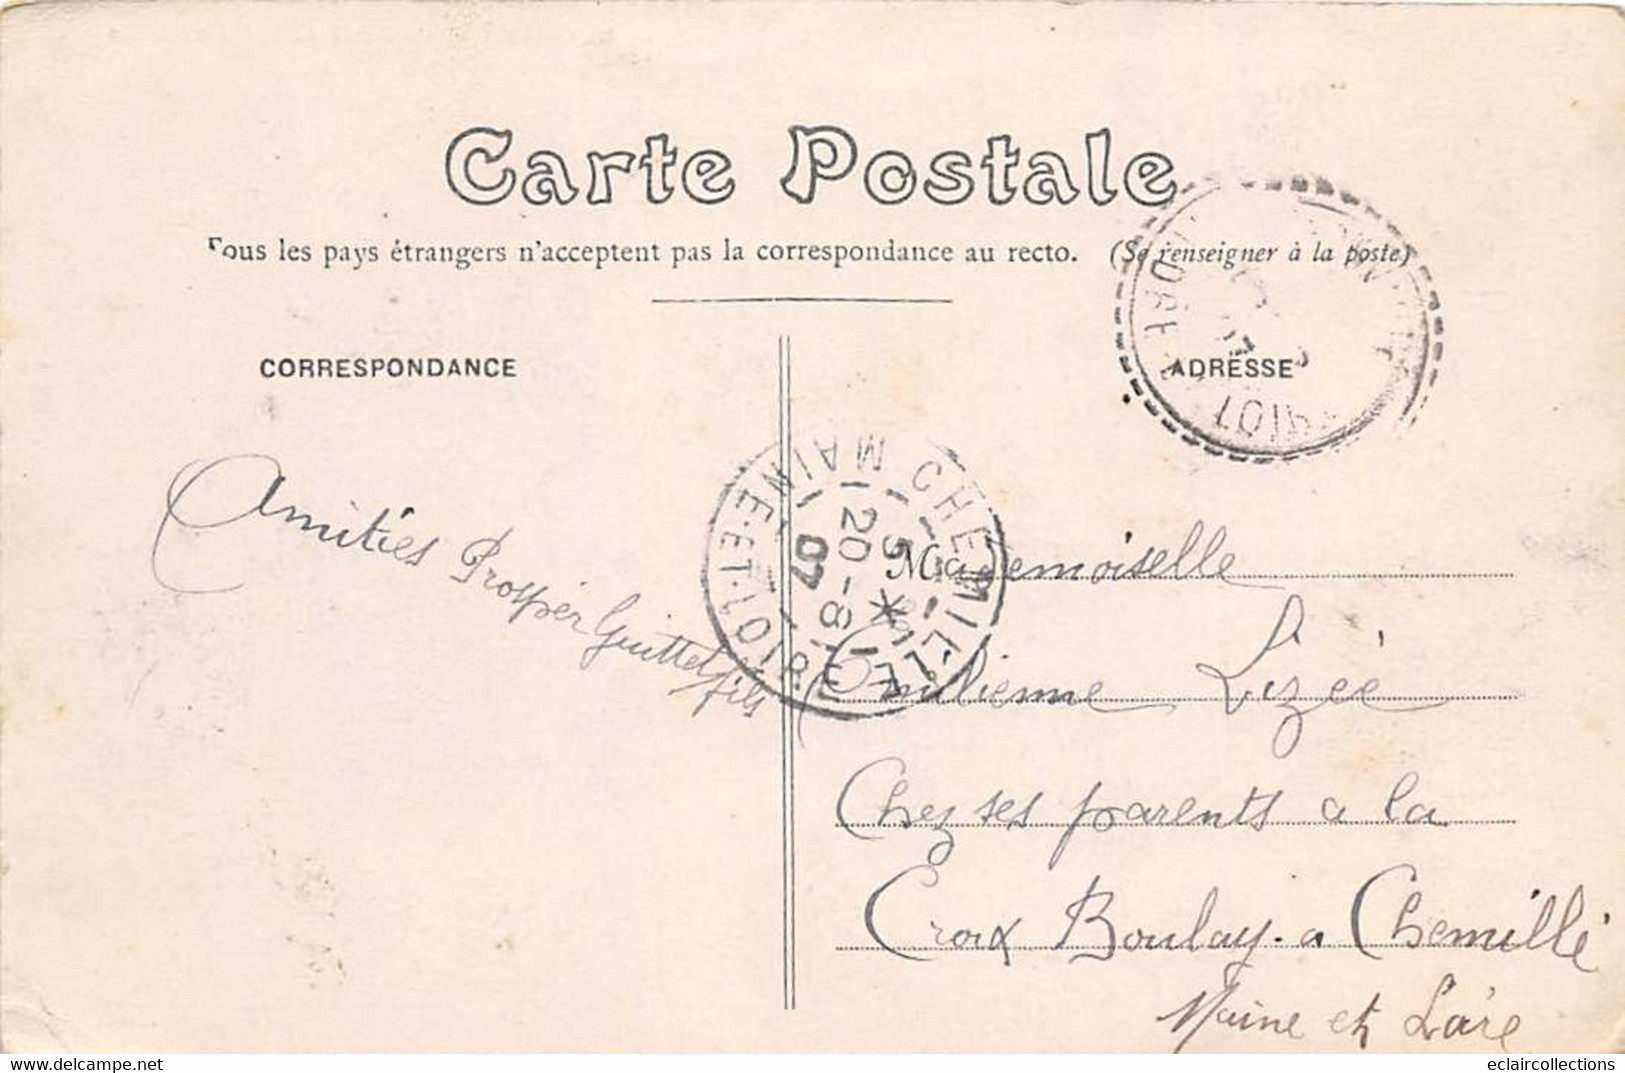 Carte Postale
Tous les pays étrangers n'acceptent pas la correspondance au recto. (Se renseigner à la poste)
CORRESPONDANCE
ADRESSE
Amitiés Prosper Guittet
fils
CHEMILLÉ
MAINE-ET-LOIRE
5 *
20 - 8
07
Mademoiselle
Emilienne Lizée
Chez ses parents a la
Croix Boulay. a Chemillé
Maine et Loire
eclaircollections